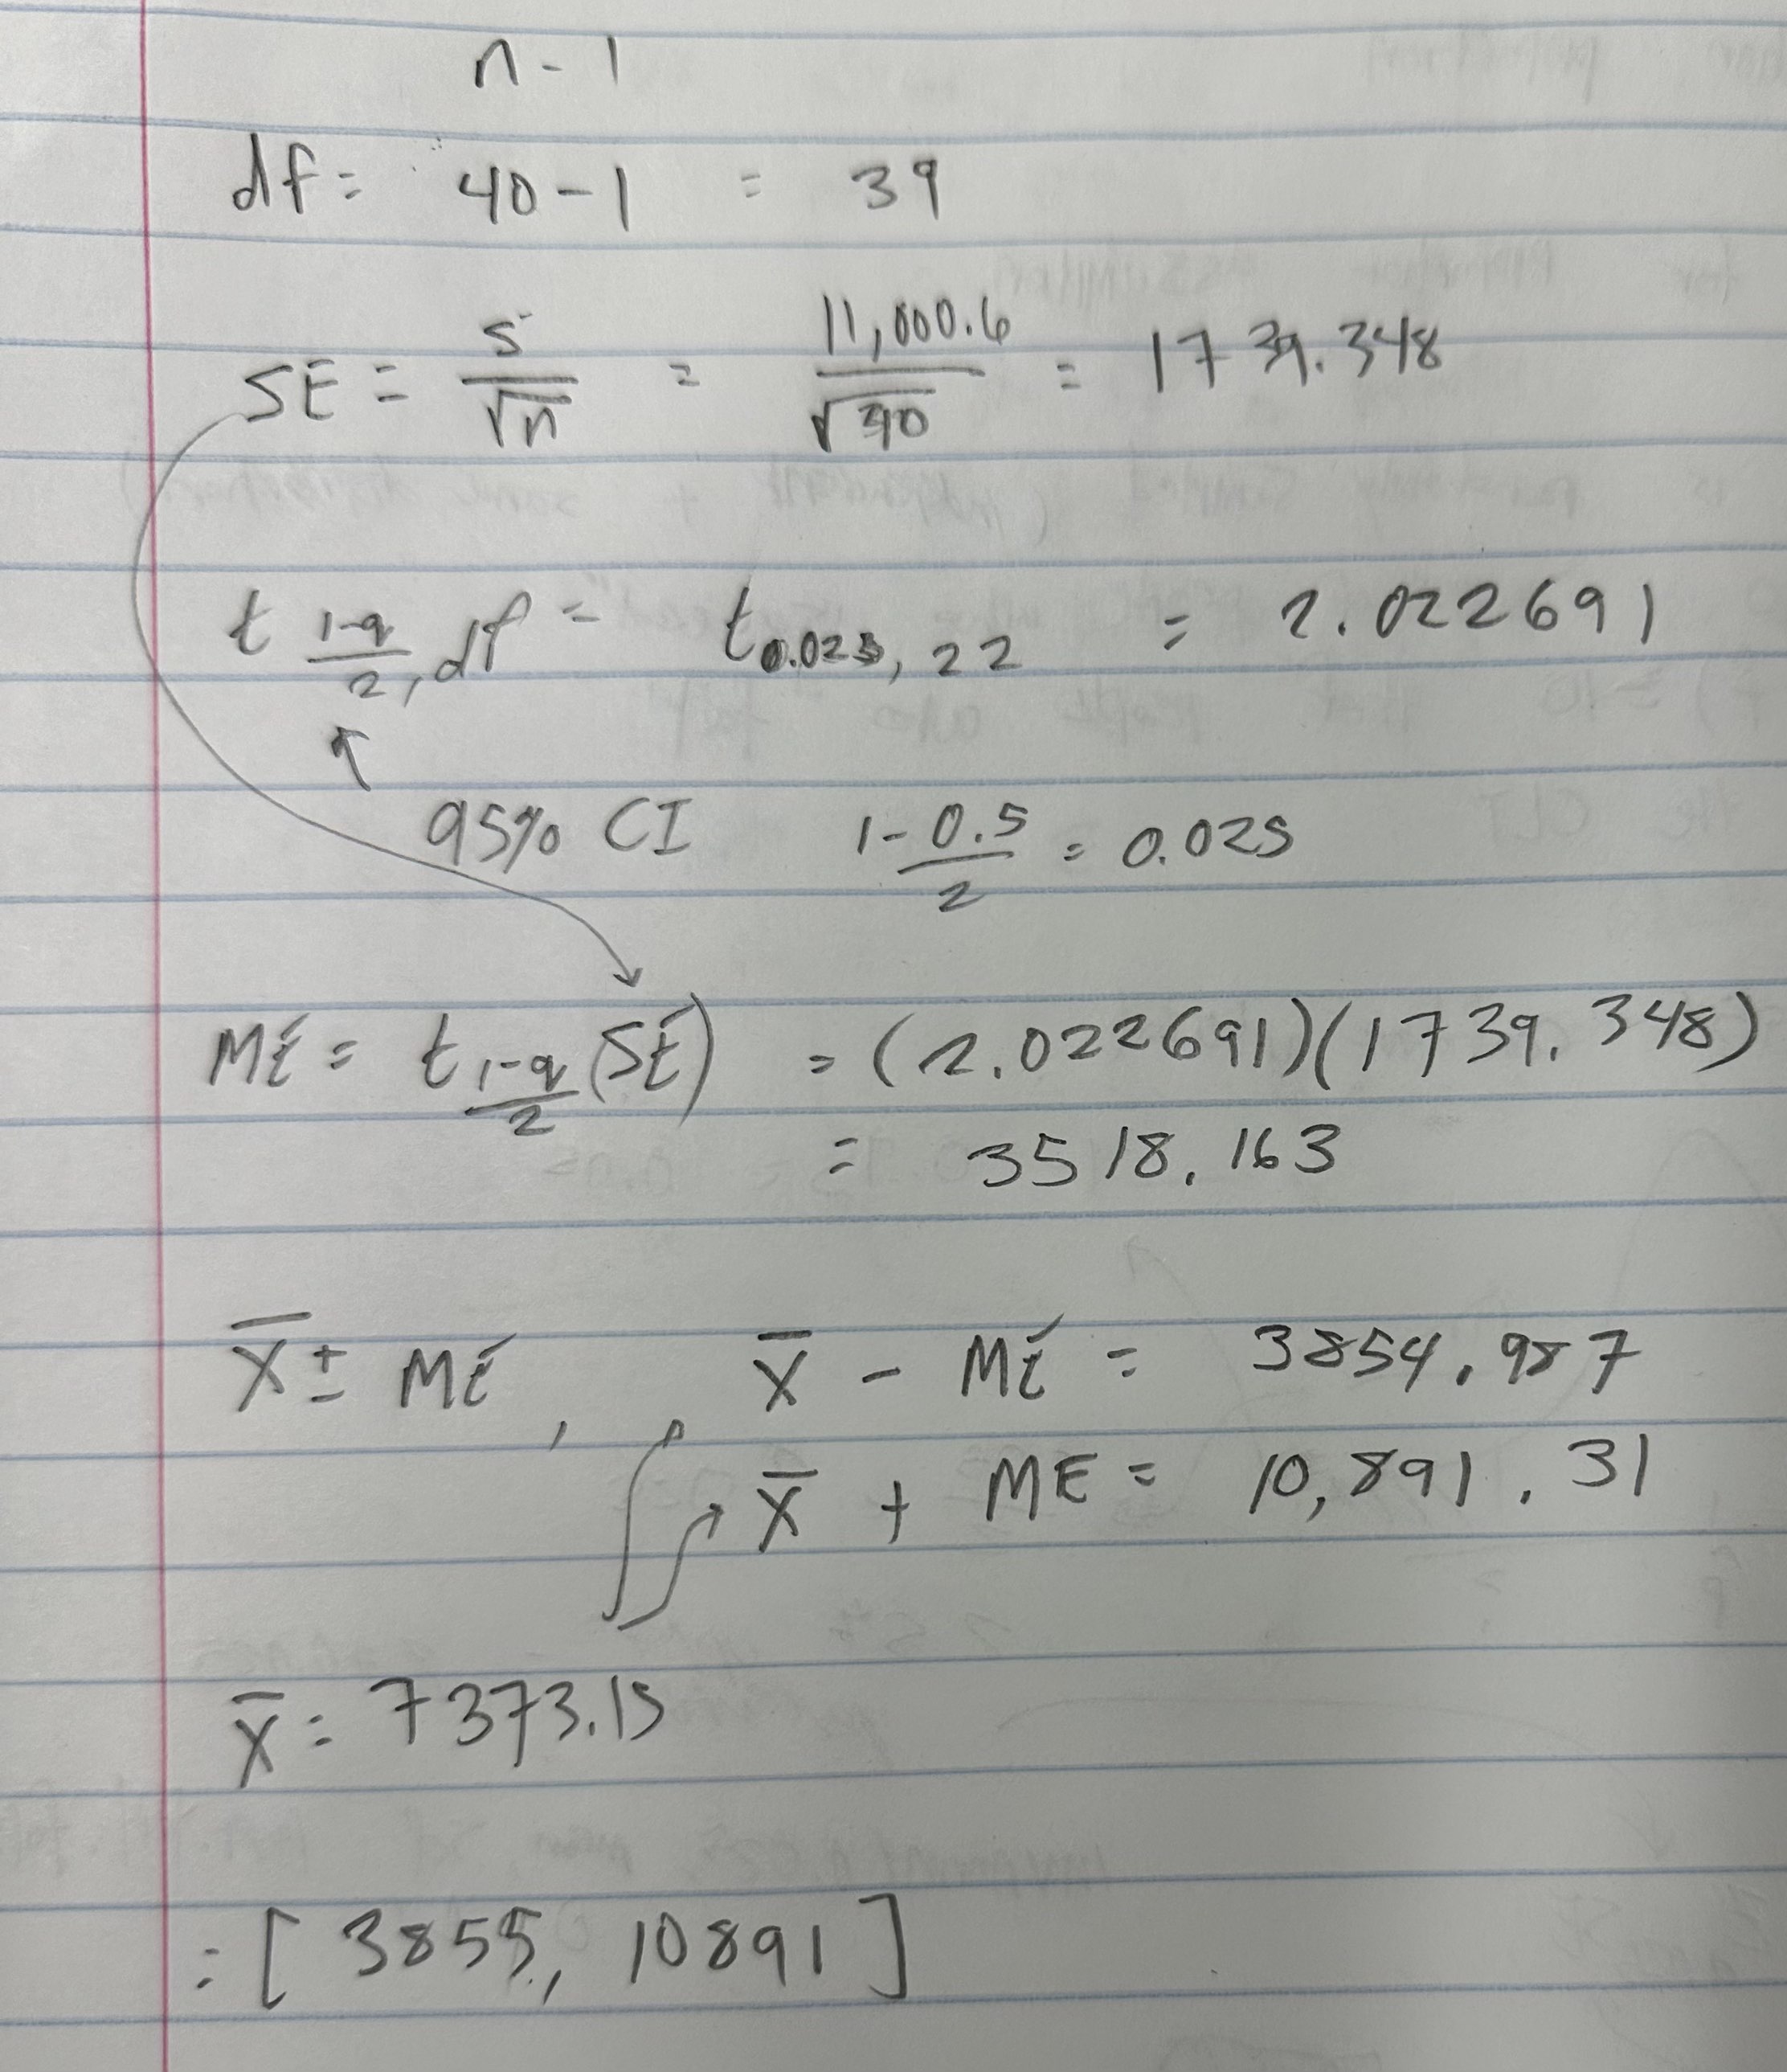 n - 1
df = 40 - 1 = 39
SE = s/√n = 11,000.6/√40 = 1739.348
t 1-q/2, df = t0.025, 22 = 2.022691
95% CI 1-0.5/2 = 0.025
ME = t 1-q/2 (SE) = (2.022691)(1739.348)
= 3518.163
x̄ ± ME, x̄ - ME = 3854.987
x̄ + ME = 10,891.31
x̄ = 7373.15
= [3855, 10891]